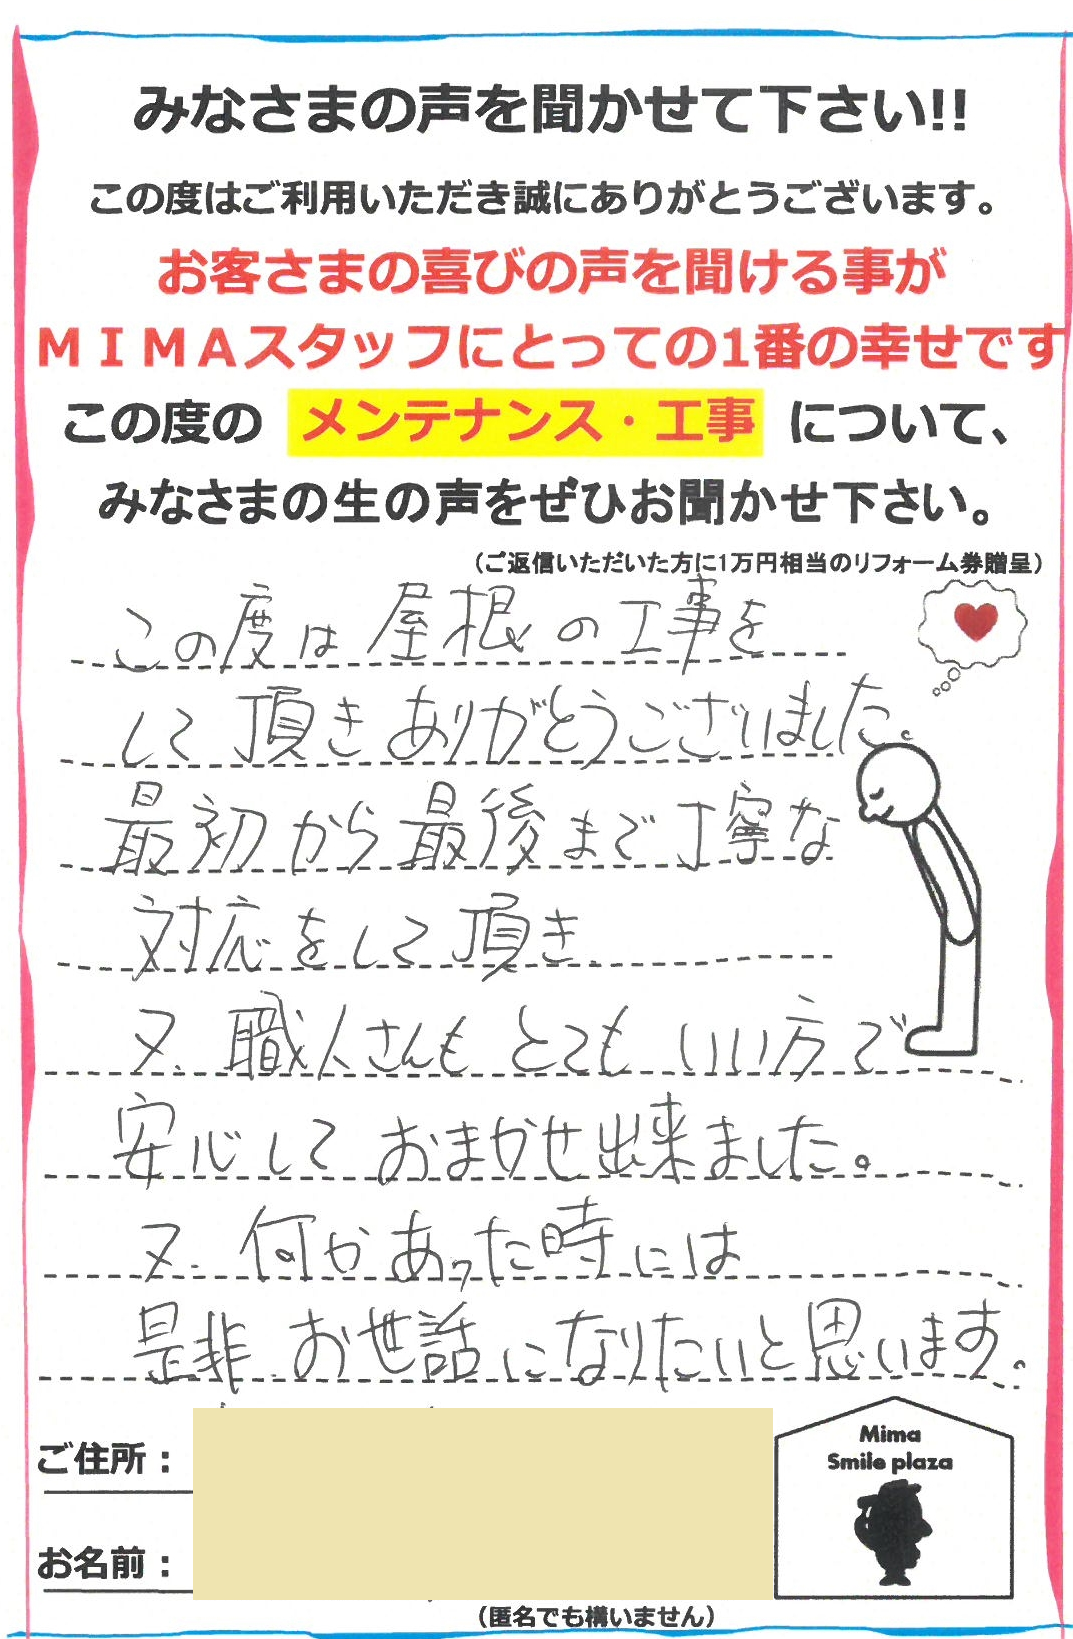 みなさまの声を聞かせて下さい!!
この度はご利用いただき誠にありがとうございます。
お客さまの喜びの声を聞ける事が
ＭＩＭＡスタッフにとっての1番の幸せです
この度の メンテナンス・工事 について、
みなさまの生の声をぜひお聞かせ下さい。
（ご返信いただいた方に1万円相当のリフォーム券贈呈）
この度は屋根の工事を
して頂きありがとうございました。
最初から最後まで丁寧な
対応をして頂き、
又、職人さんもとてもいい方で
安心しておまかせ出来ました。
又、何かあった時には
是非、お世話になりたいと思います。
ご住所：
お名前：
（匿名でも構いません）
Mima
Smile plaza